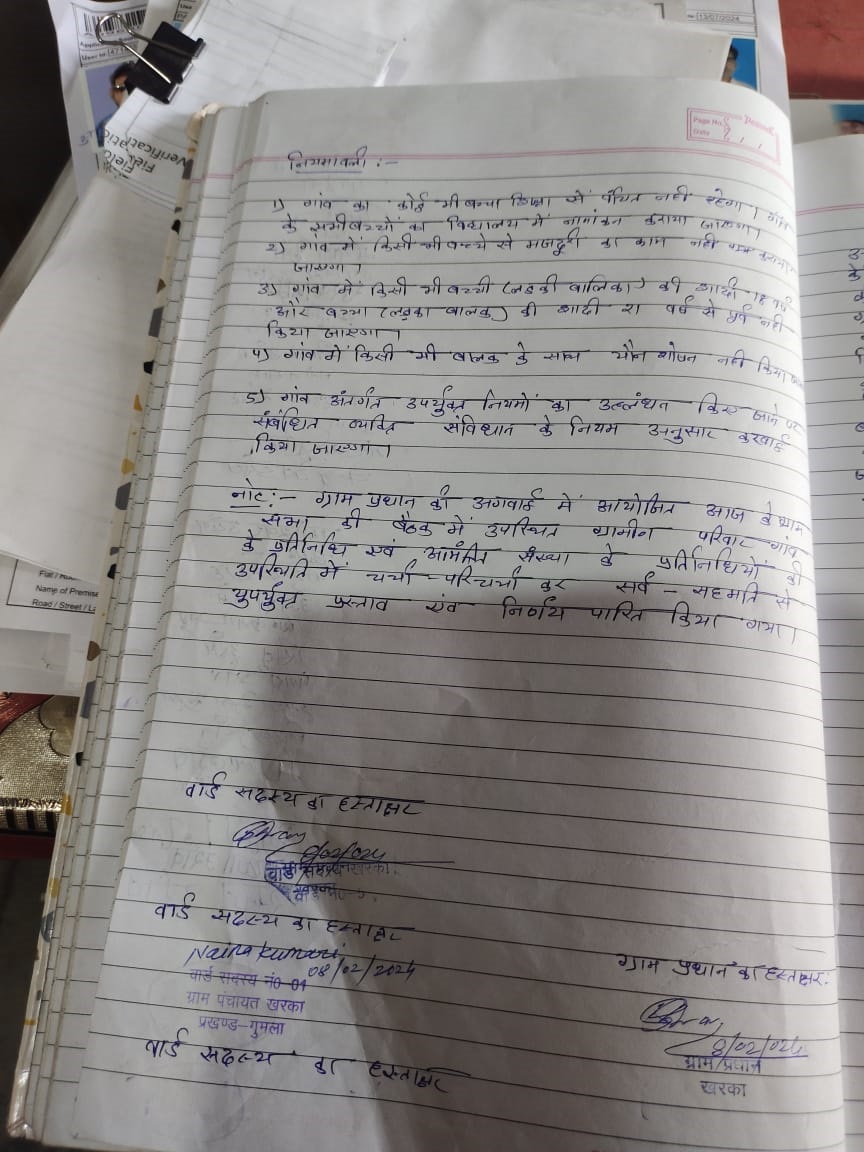 13/07/2024
Field
Verification
Page No.
Date
नियमावली :-
1) गांव का कोई भी बच्चा शिक्षा से वंचित नही रहेगा। गांव
के सभी बच्चों का विद्यालय में नामांकन कराया जाएगा।
2) गांव में किसी भी बच्चे से मजदुरी का काम नही
जाएगा।
3) गांव में किसी भी बच्ची (लड़की बालिका) की शादी 18 वर्ष
और बच्चा (लड़का बालक) की शादी 21 वर्ष से पूर्व नही
किया जाएगा।
4) गांव में किसी भी बालक के साथ यौन शोषन नही किया
5) गांव अंतर्गत उपर्युक्त नियमों का उल्लंघन किए जाने पर
संबंधित व्यक्ति संविधान के नियम अनुसार करवाई
किया जाएगा।
नोट:- ग्राम प्रधान की अगवाई में आयोजित आज के ग्राम
सभा की बैठक में उपस्थित ग्रामीण परिवार गांव
के प्रतिनिधि एवं आमंत्रित संस्था के प्रतिनिधियों की
उपस्थिति में चर्चा-परिचर्चा कर सर्व - सहमति से
युपर्युक्त प्रस्ताव एवं निर्णय पारित किया गया।
Name of Premise
Road / Street /
वार्ड सदस्य का हस्ताक्षर
8/02/024
वार्ड सदस्य का हस्ताक्षर
Naina kumari
08/02/2024
वार्ड सदस्य नं0-01
ग्राम पंचायत खरका
प्रखण्ड-गुमला
ग्राम प्रधान का हस्ताक्षर:
8/02/024
ग्राम/प्रधान
खरका
वार्ड सदस्य का हस्ताक्षर